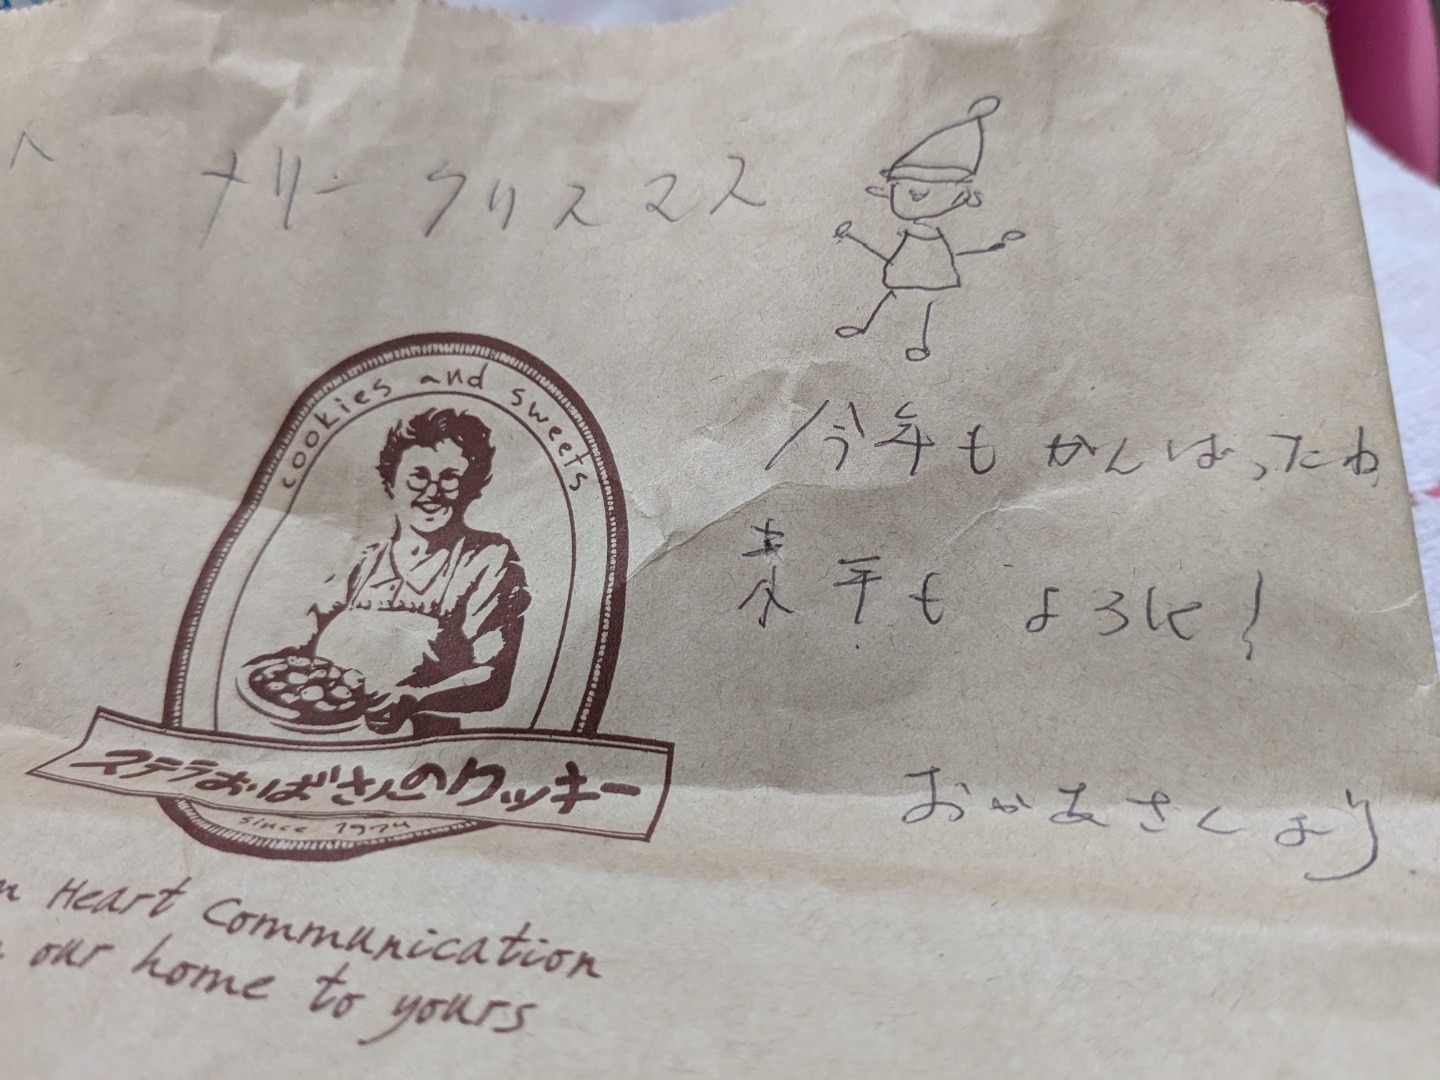 へ
メリークリスマス
今年もがんばったね
来年もよろしく!
おかあさんより
cookies and sweets
ステラおばさんのクッキー
since 1974
Heart Communication
our home to yours